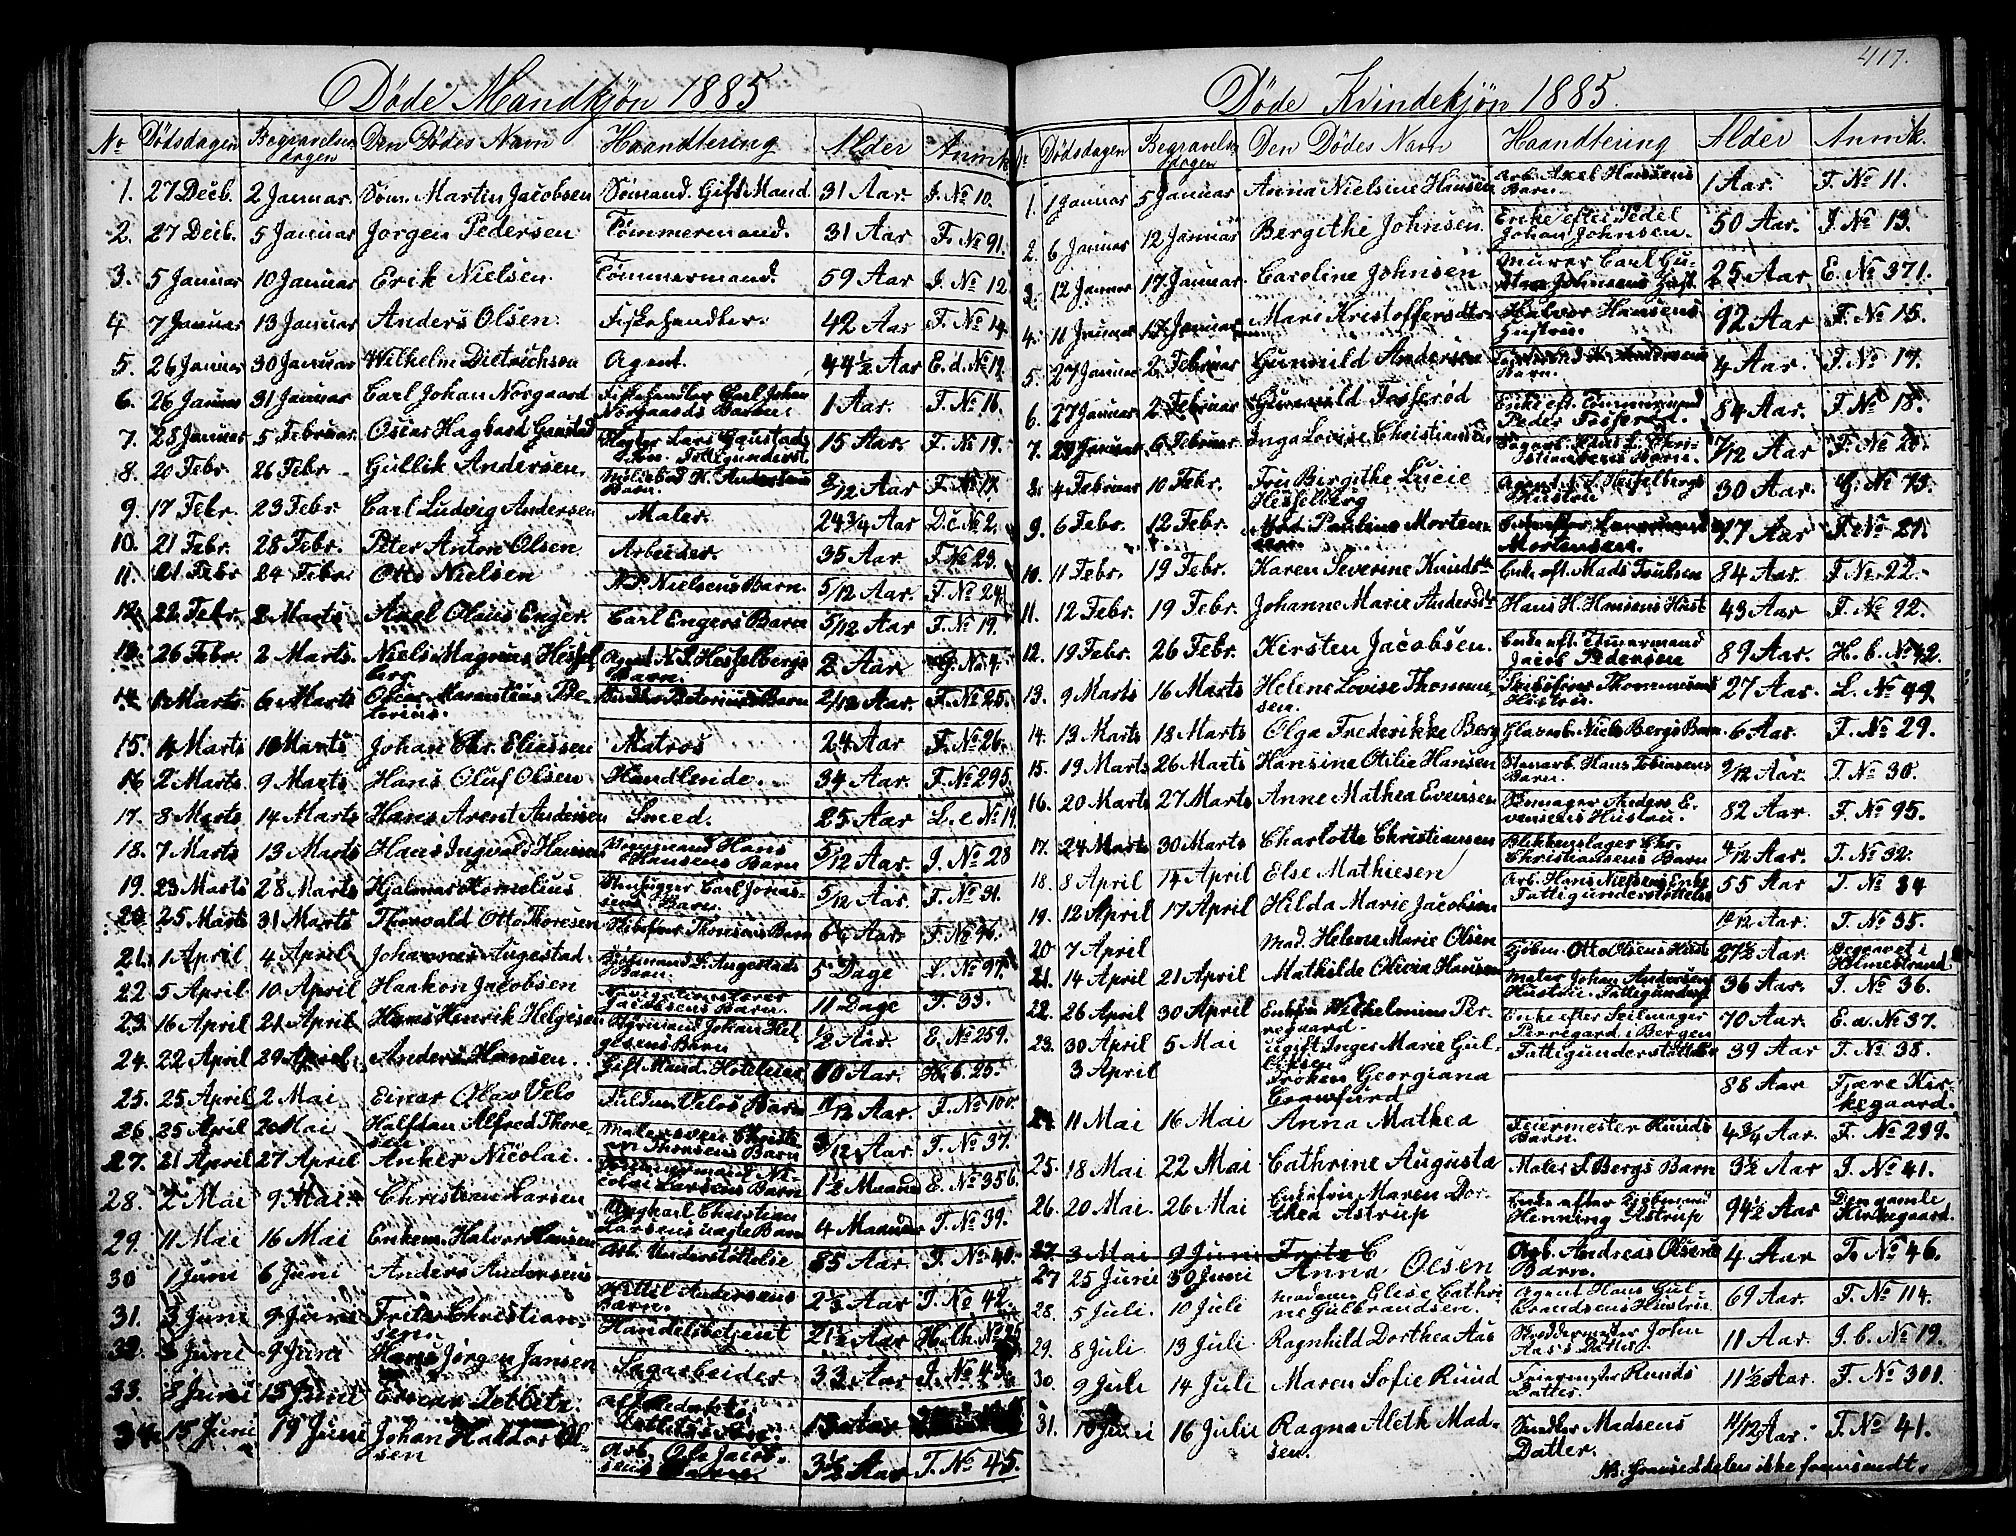 417.
Døde Mandkjøn 1885
No Dødsdagen Begravelsesdagen Den Dødes Navn Haandtering Alder Anmk
1. 27 Decb. 2 Januar. Søm. Martin Jacobsen Sømand. Gift Mand. 31 Aar. J. No 10.
2. 27 Decb. 5 Januar Jørgen Pedersen Tømmermand. 31 Aar F. No 91.
3. 5 Januar 10 Januar Erik Nielsen. Tømmermand. 59 Aar J. No 12
4 7 Januar 13 Januar Anders Olsen. Fiskehandler. 42 Aar F. No 14.
5. 26 Januar 30 Januar Wilhelm Dietrichson Agent. 44½ Aar E. d. No 19.
6. 26 Januar 31 Januar Carl Johan Norgaard Fiskehandler Carl Johan Norgaards Barn. 1 Aar. F. No 16.
7. 28 Januar 5 Februar. Hagbart Gaustad Lars Gaustads Fattigunderst. 15 Aar. F. No 19.
8. 20 Febr. 26 Febr. Gullik Andersen. K. Andersens Barn. /12 Aar F. No 17
9. 17 Febr. 23 Febr. Carl Ludvig Andersen Maler. 24¾ Aar D. c. No 2.
10. 21 Febr. 28 Febr. Peter Anton Olsen. Arbeider. 35 Aar F. No 23.
11. 21 Febr 24 Febr. Otto Nielsen Nielsens Barn. 5/12 Aar. F. No 24.
12 22 Febr. 2 Marts. Axel Olaus Enger. Carl Engers Barn 5/12 Aar F. No 19.
13. 26 Febr. 2 Marts. Niels Magnus Hesselberg Agent N. S. Hesselbergs Barn. 2 Aar G. No 4.
14 1 Marts. 6 Marts. Petersens Barn 2/12 Aar. F. No 25.
15. 4 Marts 10 Marts Johan Chr. Eliassen Matros 24 Aar F. No 26.
16 2 Marts. 9 Marts. Hans Oluf Olsen Handlende. 34 Aar. F. No 295.
17. 8 Marts 14 Marts Hans Arent Andersen Smed. 25 Aar L. e No 19.
18. 7 Marts 13 Marts. Hans Ingvald Hansen Hans Hansens Barn 5/12 Aar. J. No 28
19. 23 Marts 28 Marts. Hjalmar Kornelius Stenhugger Carl Jonassens Barn. 5/12 Aar. F. No 31.
20. 25 Marts 31 Marts. Thorvald Otto Thoresen Thoresens Barn Aar. F. No
21. 1 April 4 April. Johannes Augestad. Augestads Barn. 5 Dage L. No 97.
22 5 April 10 April. Haakon Jacobsen Jacobsens Barn. 11 Dage F. 33.
23. 16 April 21 April Hans Henrik Helgesen Johan Helgesens Barn ½ Aar. E. No 259.
24. 22 April 29 April. Anders Hansen. Gift Mand. 60 Aar. H. b. 25.
25. 25 April 2 Mai Einar Olav Velo Velos Barn 11/12 Aar. F. No 100.
26 25 April 2 Mai Halfdan Alfred Thoresen Malersvein Christian Thoresens Barn /12 Aar. F. No 37.
27. 21 April 27 April Anker Nicolai. Tømmermand Nicolai Larsens Barn 1½ Maaned E. No 356.
28. 2 Mai 9 Mai. Christian Larsen Christian Larsens uægte Barn 4 Maaneder F. No 39.
29. 11 Mai 16 Mai Enkem. Halvor Hansen Arb. Understøttelse 85 Aar F. No 40.
30 1 Juni 6 Juni Anders Andersens Kittil Andersens Barn. 2½ Aar F. No 42.
31. 3 Juni 9 Juni Fritz Christiansen Handelsbetjent 21½ Aar H. th. No 26
32. 3 Juni 9 Juni Hans Jørgen Jansen Sagarbeider 33 Aar J. No 43.
33. 8 Juni 13 Juni Einar 13 Aar
34. 15 Juni 19 Juni Johan Haldor Olsen Arb. Ole Jacobsens Barn. 3½ Aar F. No 45.
Døde Kvindekjøn 1885.
No Dødsdagen Begravelsesdagen Den Dødes Navn Haandtering Alder Anmk.
1. 1 Januar 5 Januar Anna Nielsine Hansen Arb. Axel Hansens Barn. 1 Aar. F. No 11.
2. 6 Januar 12 Januar Bergithe Johnsen. Enke efter Pedel Johan Johnsen. 50 Aar. J. No 13.
3. 12 Januar 17 Januar. Caroline Johnsen Murer Carl Gustav Johnsens Hust. 25 Aar E. No 371.
4. 11 Januar 17 Januar Mari Kristoffersdtr. Halvor Hansens Hustru. 92 Aar F. No 15.
5. 27 Januar 2 Februar Gunnild Andersen Andersens Barn. 4 Aar. F. No 17.
6. 27 Januar 2 Februar Gunnild Fosserød Enke eft. Tømmermand Peder Fosserød. 84 Aar. F. No 18.
7. 29 Januar 6 Februar. Inga Lovise Christiansen Christiansens Barn. 7/12 Aar F. No 20.
8. 4 Februar 10 Febr. Fru Birgithe Lucie Hesselberg Agent N. S. Hesselbergs Hustru 30 Aar. G. No 73.
9. 6 Febr. 12 Febr. Mad. Pauline Mortensen. Mortensen. 77 Aar F. No 21.
10. 11 Febr. 19 Febr. Karen Severine Knudsdtr Enke eft. Mads Trulsen 84 Aar F. No. 22.
11. 12 Febr. 19 Febr. Johanne Marie Andersdtr Hans H. Hansens Hust 43 Aar F. No 92.
12. 19 Febr. 26 Febr. Kirsten Jacobsen. Enke eft. Tømmermand Jacob Pedersen 89 Aar. H. b. No 42.
13. 9 Marts 16 Marts Helene Lovise Thommesen. Skibsfører Thommesens Hustru 27 Aar. L. No 99.
14. 13 Marts 18 Marts Olga Frederikke Berg Glasarb. Niels Bergs Barn. 6 Aar. F. No 29.
15. 19 Marts 26 Marts Hansine Otilie Hansen Stenarb. Hans Tobiasens Barn 9/12 Aar. F. No 30.
16. 20 Marts 27 Marts Anne Mathea Evensen Anders Evensens Hustru. 82 Aar. F. No 95.
17. 24 Marts 30 Marts Charlotte Christiansen Blikkenslager Chr. Christiansens Barn 4/12 Aar F. No 32.
18. 8 April 14 April Else Mathiesen Arb. Hans Nielsens Enke Fattigunderstøttelse 55 Aar F. No 34
19. 12 April 17 April Hilda Marie Jacobsen 10/12 Aar. F. No 35.
20 7 April Mad. Helene Marie Olsen Otto Olsens Hust 27½ Aar Begravet i Holmestrand.
21. 14 April 21 April Mathilde Olivia Hansen Maler Johan Andersens Hustru. Fattigunderst 36 Aar. F. No 36.
22. 26 April 30 April Enkefru Wilhelmine Perregaard. Enke efter Seilmager Perregard i Bergen 70 Aar. E. a. No 37.
23. 30 April 5 Mai ugift Inger Marie Gulliksen Fattigunderstøttelse 39 Aar F. No 38.
3 April Frøken Georgiana Crawfurd 86 Aar Tjøre Kirkegaard.
24. 11 Mai 16 Mai Anna Mathea Feiermester Ruuds Barn. 4¾ Aar. F. No 299.
25. 18 Mai 22 Mai Cathrine Augusta Maler S. Bergs Barn 3½ Aar F. No 41.
26. 20 Mai 26 Mai Enkefru Maren Dorthea Astrup Enke efter Henning Astrup 94½ Aar Den gamle Kirkegaard.
27. 3 Mai 9 Juni Fritz C
27 25 Juni 30 Juni Anna Olsen Arb. Andreas Olsens Barn. 4 Aar F. No 46.
28. 5 Juli. 10 Juli madam Elise Cathrine Gulbrandsen. Agent Hans Gulbrandsens Hustru 69 Aar. F. No 114.
29. 8 Juli 13 Juli Ragnhild Dorthea Aas Skreddermester John Aas's Datter 11 Aar. J. b. No 19.
30. 9 Juli 14 Juli Maren Sofie Ruud Feiermester Ruuds Datter. 11½ Aar. F. No 301.
31. 10 Juni 16 Juli Ragna Aleth Madsen. Snedker Madsens Datter. 4/12 Aar. F. No 41.
ikke fremsendt.